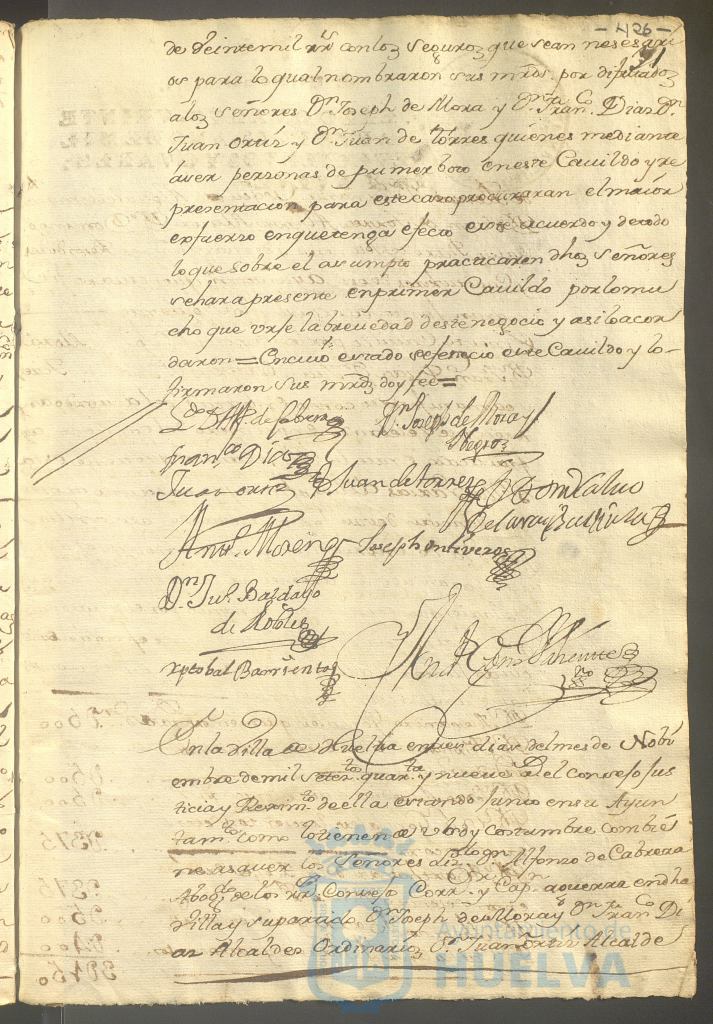 - 426 -
91
de veinte mil rrs con los seguros que sean nesesari
os para lo qual nombraron sus mrds. por diputados
a los señores Dn. Joseph de Mora y Dn. Fran.co Dias Dn.
Juan Ortiz y Dn. Juan de torres quienes mediante
aver personas de primer boto en este Cavildo y re
presentacion para este caso procuraran el maior
esfuerzo en que tenga efecto este acuerdo y de todo
lo que sobre el asumpto practicaren dhos señores
se hara presente en primer Cavildo por lo mu
cho que urje la brevedad de este negocio y asi lo acor
daron = En cuio estado se fenecio este Cavildo y lo
firmaron sus mrds doy fee =
Ldo. D. Alf. de Cabrera
Dn. Joseph de Mora y
Negros
Fran.co Dias
Juan Ortiz
D Juan de torres
D Gonzalo
de la
Anto. Moreno
Joseph Ontiveros
Dn. Ju. Bardajo
de Robles
Xptobal Barrientos
En la Villa de Huelva en tres dias del mes de Nobi
embre de mil setezto. quarta. y nueve el Consejo Jus
ticia y Reximto. de ella estando junto en su Ayun
tamto. como lo tienen de vso y costumbre combie
ne a saver los Señores Lizdo. Dn. Alfonso de Cabrera
Abogdo. de los Rs. Consejos Corrxr. y Capn. a guerra en dha
Villa y su partido Dn. Joseph de Mora y Dn. Fran.co Di
as Alcaldes Ordinarios Dn. Juan Ortiz Alcalde
Ayuntamiento de
HUELVA